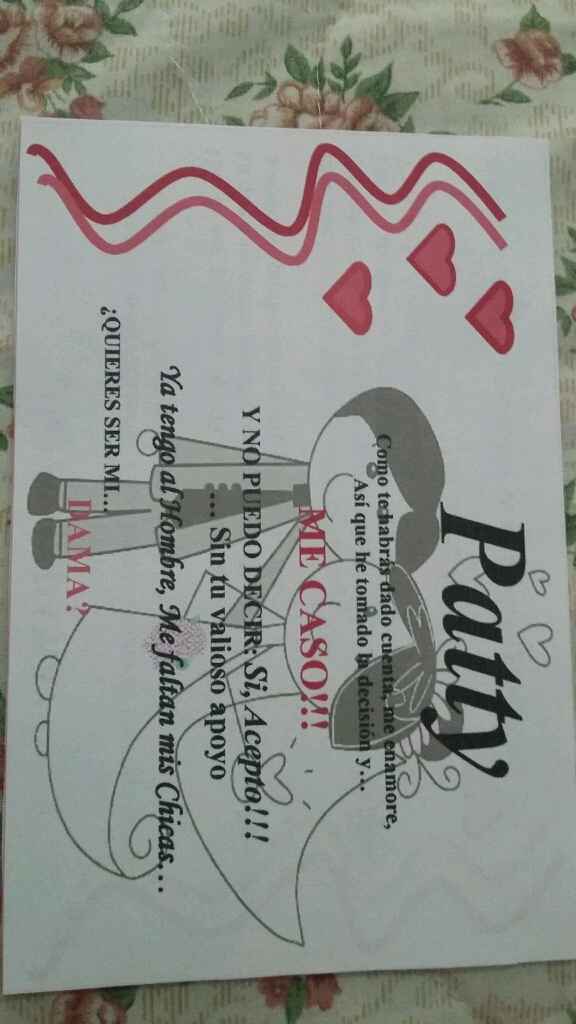 Patty
Como te habrás dado cuenta, me enamore,
Así que he tomado la decisión y...
ME CASO!!!
Y NO PUEDO DECIR: Si, Acepto!!!
... Sin tu valioso apoyo
Ya tengo al Hombre, Me faltan mis Chicas...
¿QUIERES SER MI...
DAMA?